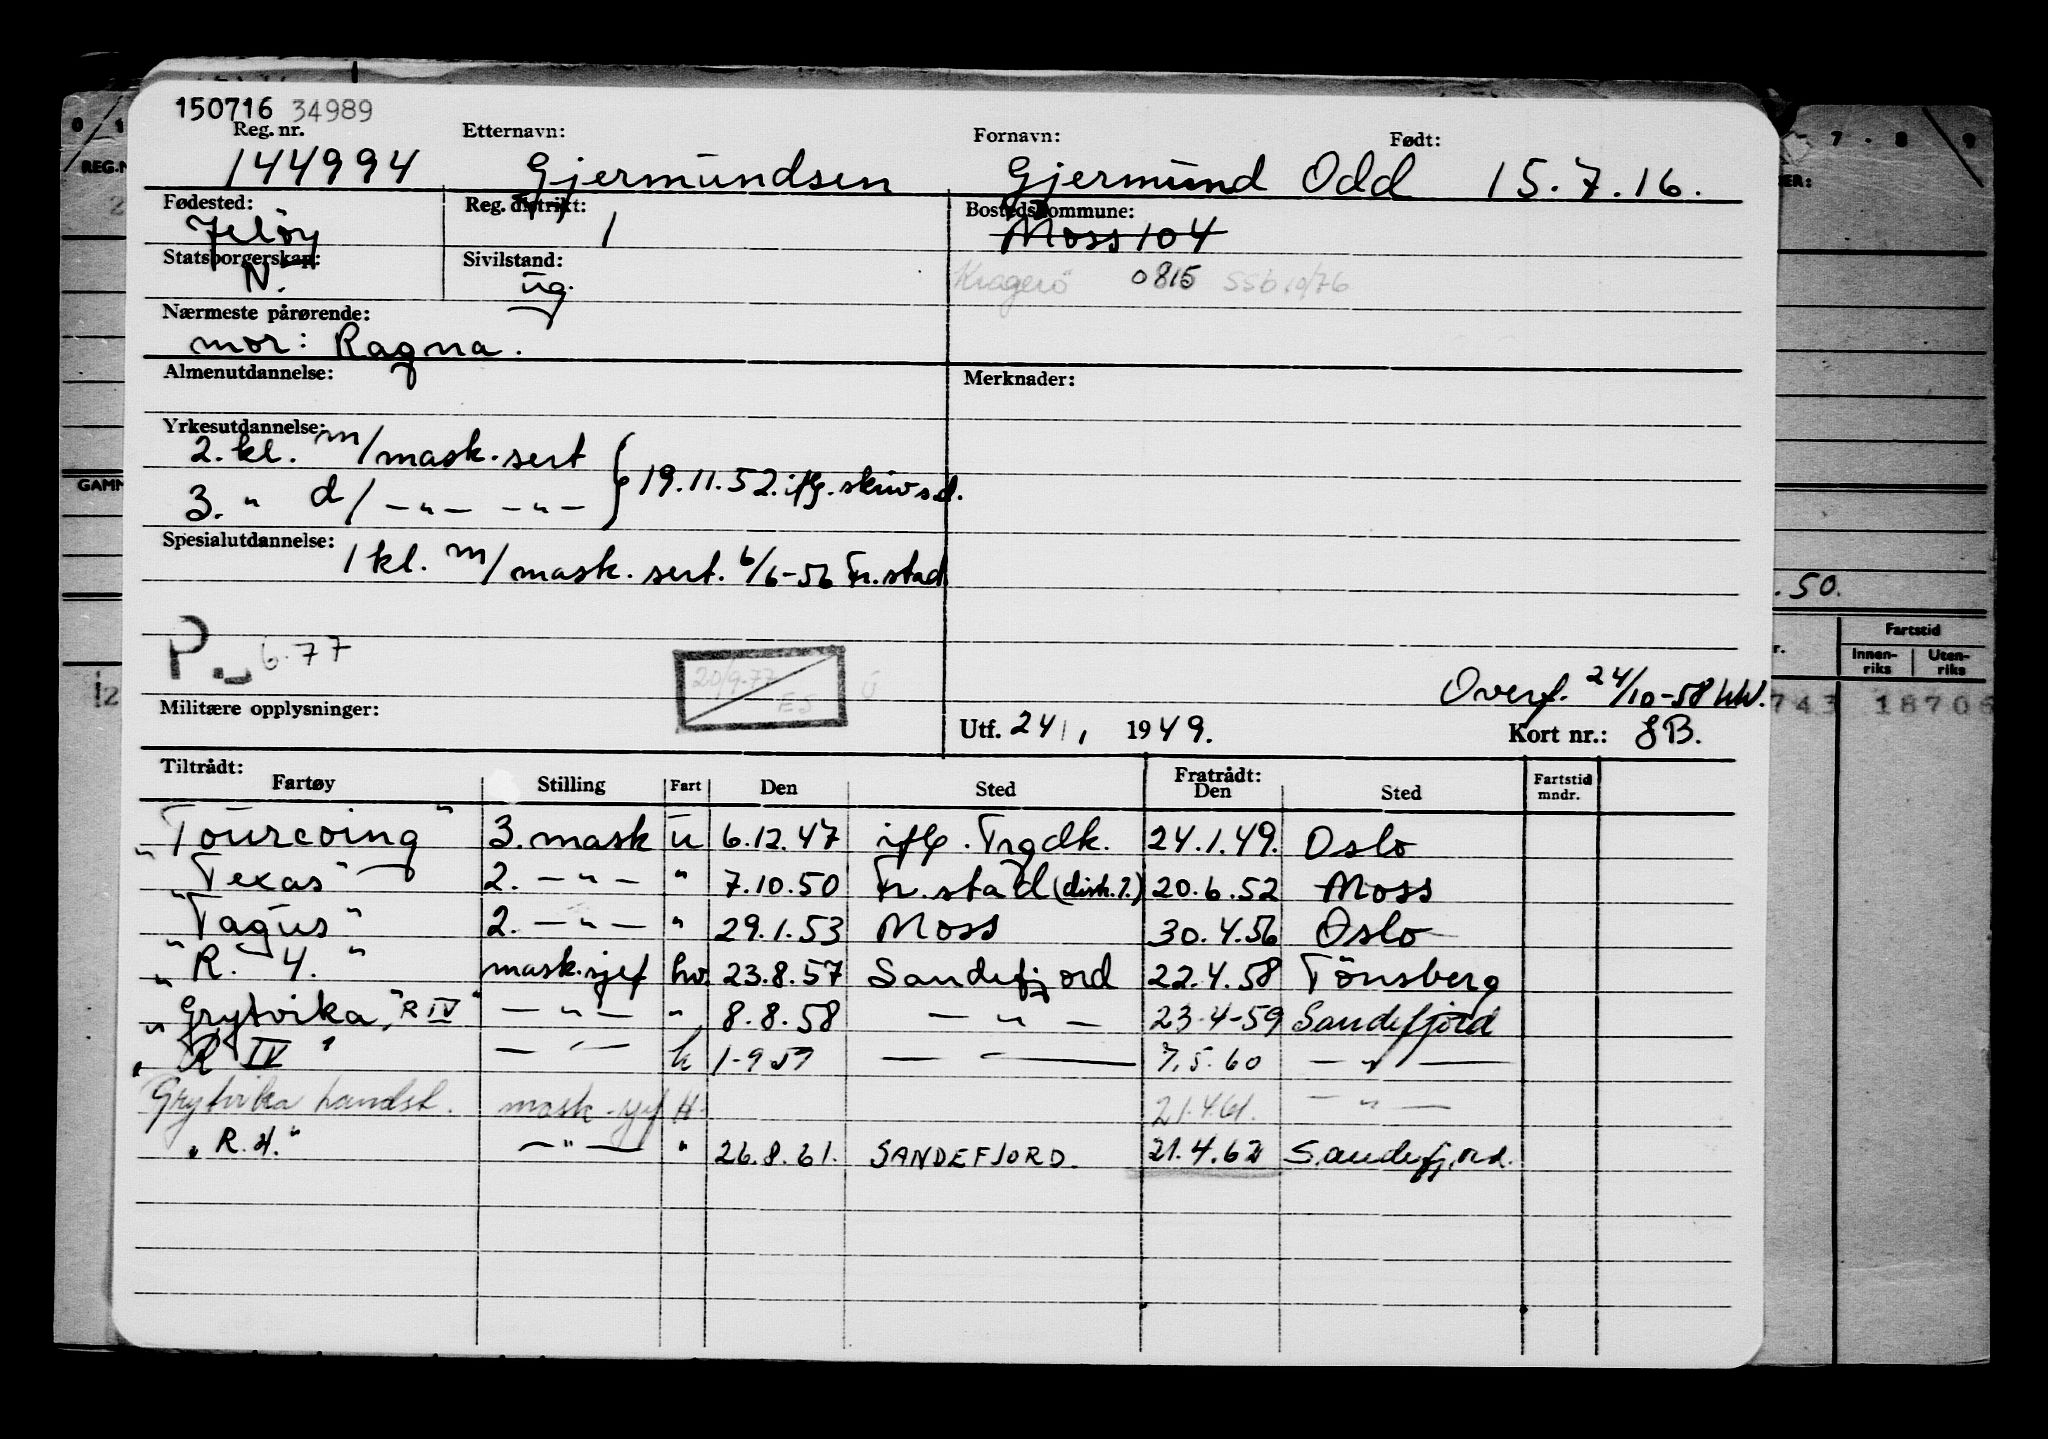 150716 34989
Reg. nr. Etternavn: Fornavn: Født:
144994 Gjermundsen Gjermund Odd 15.7.16.
Fødested: Reg. distrikt: Bostedskommune:
Jeløy 1 Moss 104
Statsborgerskap: Sivilstand:
N. ug. Kragerö 0815 SSb 10/76
Nærmeste pårørende:
mor: Ragna.
Almenutdannelse: Merknader:
Yrkesutdannelse:
2. kl. m/mask.sert
3. " d/ -"- -"- } 19.11.52. iflg. skiv s.d.
Spesialutdannelse:
1 kl. m/mask. sert. 6/6-56 Fr.stad
P. 6.77
20/9-77 ES
Overf. 24/10-58 hW.
Militære opplysninger: Utf. 24/1, 1949. Kort nr.: 8B.
Tiltrådt: Fratrådt:
Fartøy Stilling Fart Den Sted Den Sted Fartstid mndr.
"Tourcoing" 3. mask u 6.12.47 iflg. Trgdk. 24.1.49. Oslo
"Texas" 2. -"- " 7.10.50 Fr.stad (disk.?.) 20.6.52 Moss
"Tagus" 2. -"- " 29.1.53 Moss 30.4.56 Oslo
"R. 4." mask.sjef hv. 23.8.57 Sandefjord 22.4.58 Tönsberg
"Grytvika, "R IV" -"- " 8.8.58 -"- 23-4-59 Sandefjord
"R IV" -"- h 1-9 59 -"- 7.5.60 -"-
Grytvika landst. mask.sjef H. 21.4.61. -"-
"R.4." -"- " 26.8.61. SANDEFJORD. 21.4.62 Sandefjord.
7 - 8 9
REG.N
GAMM
.50.
Fartstid
Innen-riks Uten-riks
743 18706